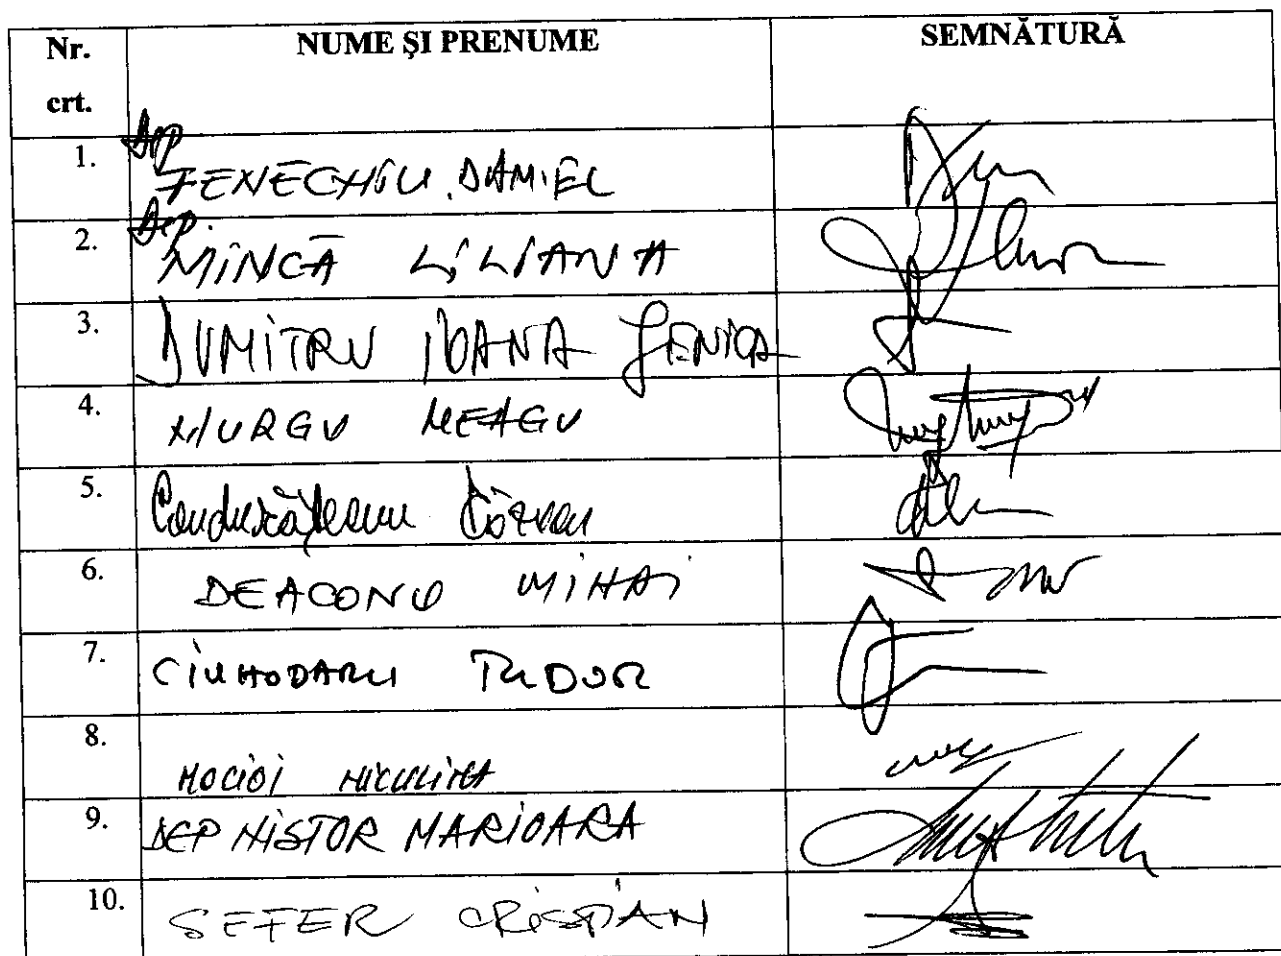 Nr. crt. NUME ȘI PRENUME SEMNĂTURĂ
1. Dep FENECHIU DANIEL
2. Dep. MINCĂ LILIANA
3. DUMITRU IOANA JENICA
4. MURGU NEAGU
5. Conduraţeanu Răzvan
6. DEACONU MIHAI
7. CIUHODARU TUDOR
8. MOCIOI NICULINA
9. DEP NISTOR MARIOARA
10. SEFER CRISTIAN